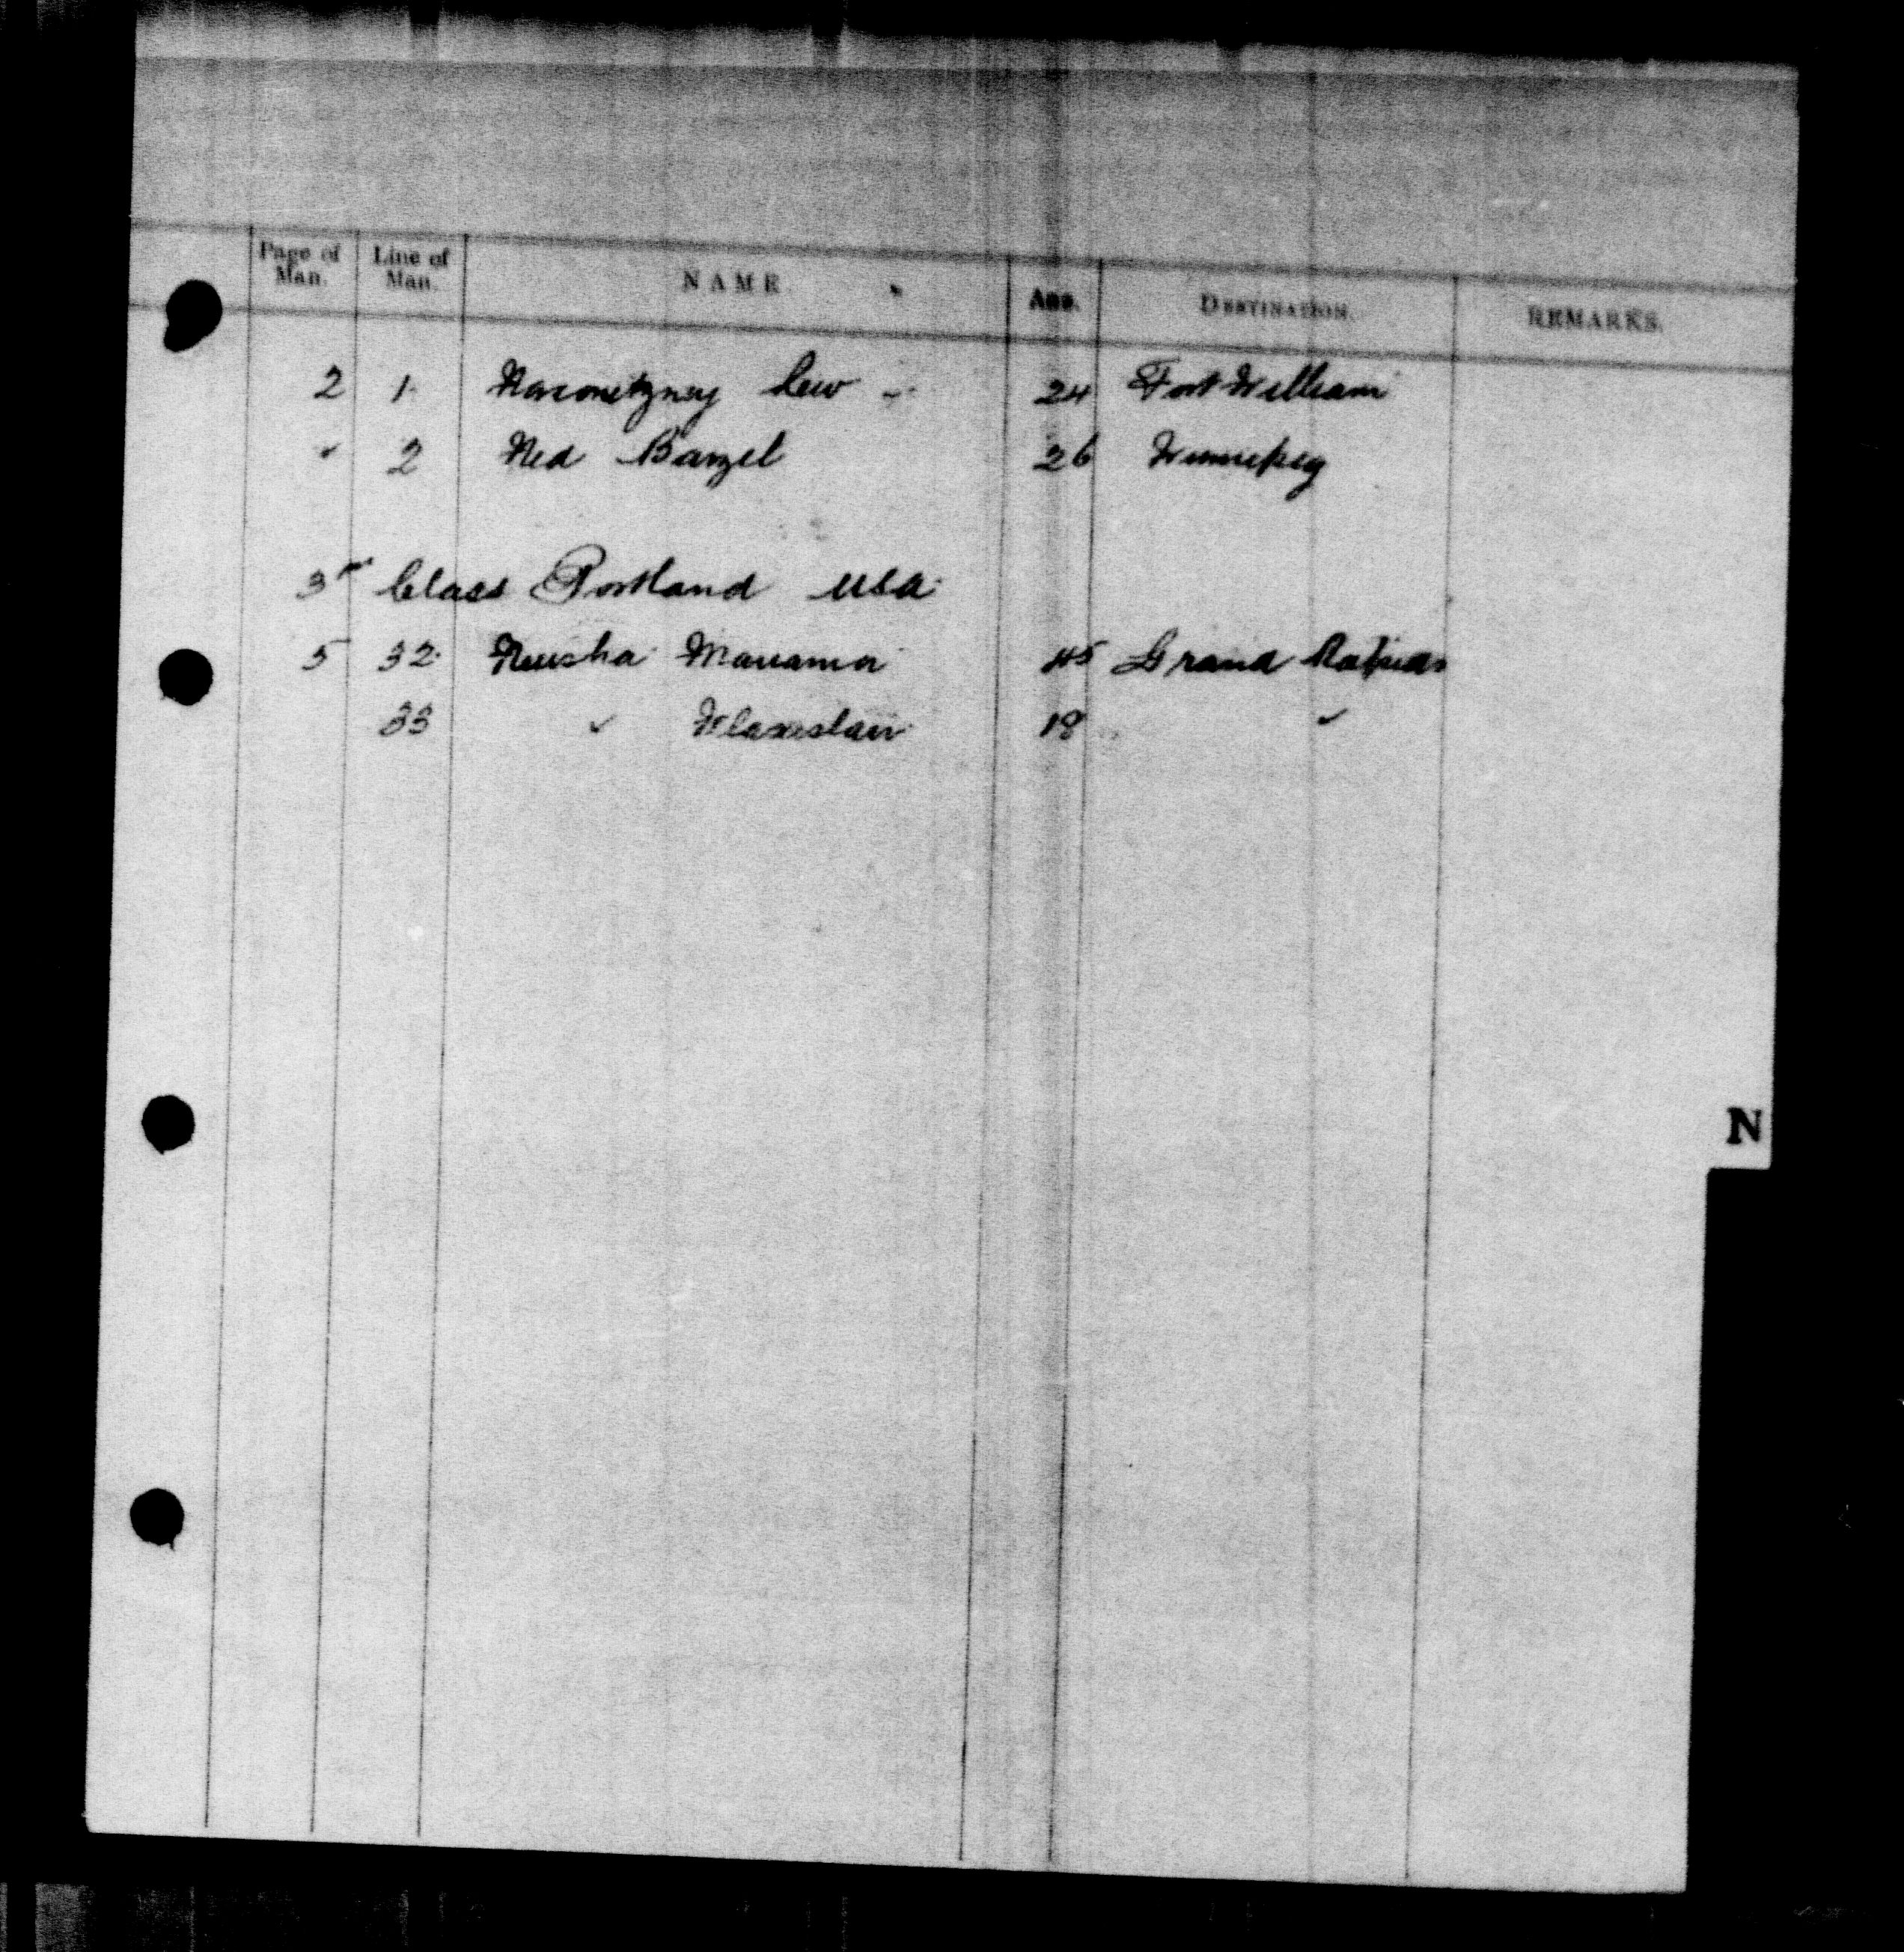 Page of Man. Line of Man. NAME Age. DESTINATION. REMARKS.
2 1 Lew 24 Fort William
" 2 Ned Barzel 26 Winnipeg
3rd Class Portland USA
5 32 Neusha Marianna 45 Grand Rapids
33 " 18 "
N